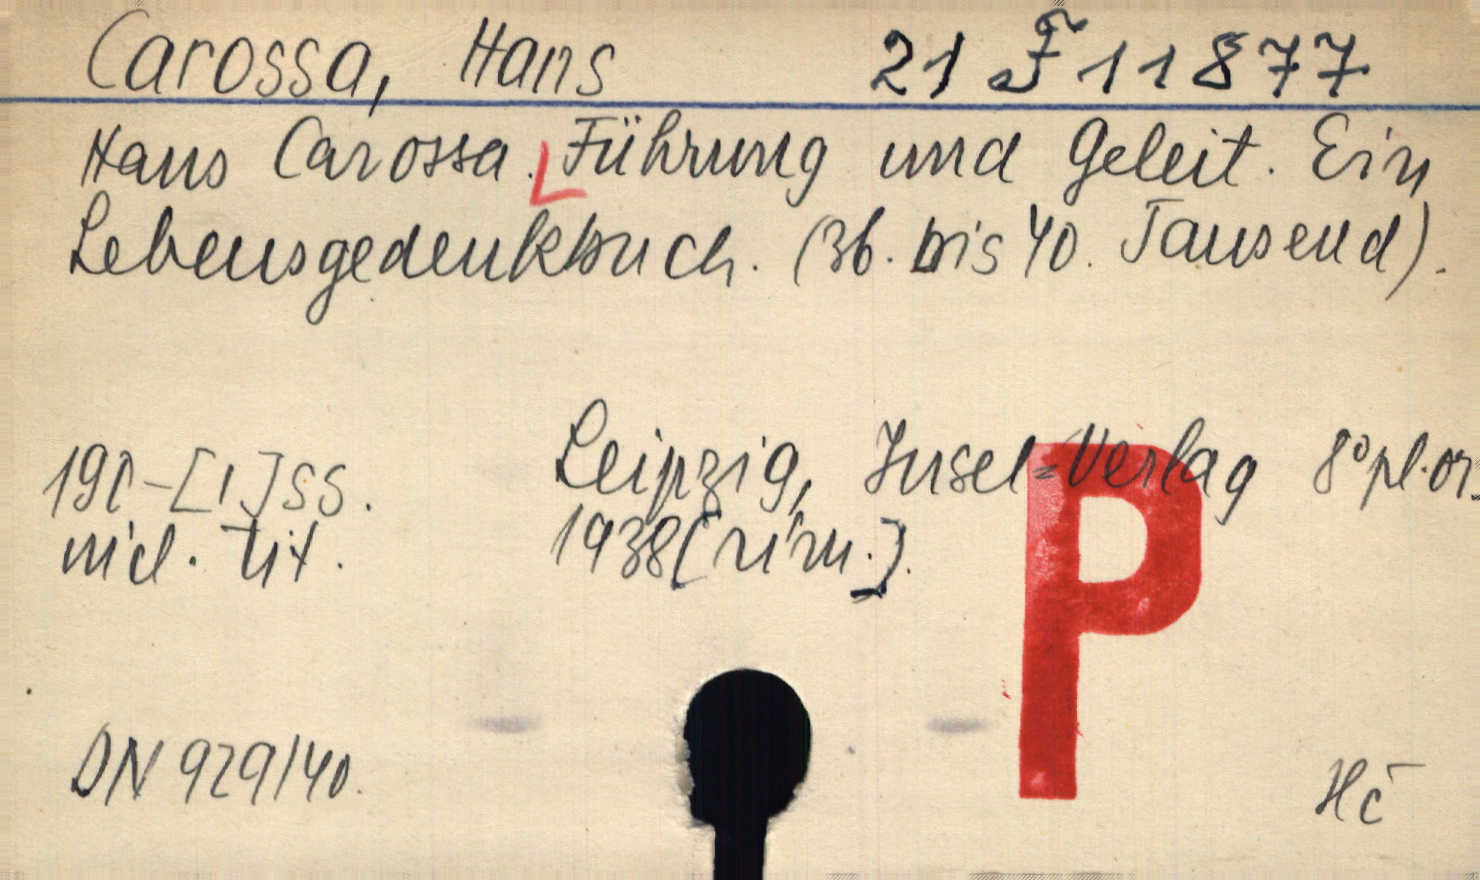 Carossa, Hans 21 F 11877
Hans Carossa. Führung und Geleit. Ein
Lebensgedenkbuch. (36. bis 40. Tausend).
Leipzig, Insel-Verlag 8° pl. or.
[1] SS.
1938
P
DN 929/40.
Hč